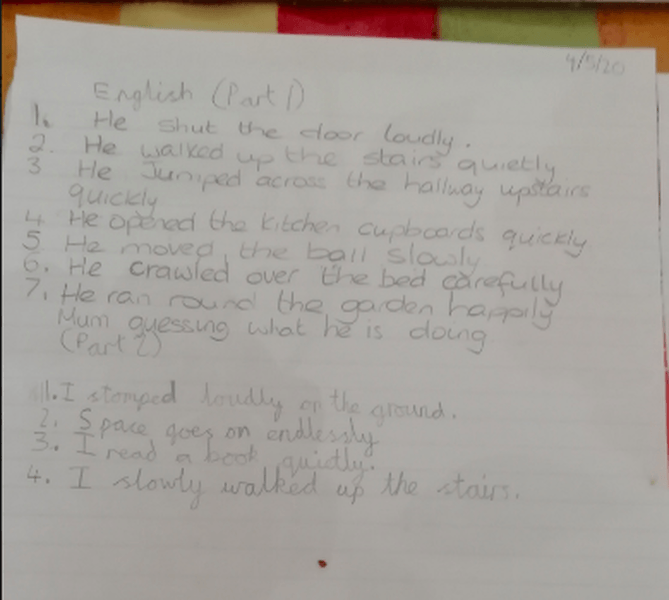 4/5/20
English (Part 1)
1. He shut the door loudly.
2. He walked up the stairs quietly
3 He Jumped across the hallway upstairs
quickly
4. He opened the kitchen cupboards quickly
5. He moved the ball slowly
6. He crawled over the bed carefully
7. He ran round the garden happily
Mum guessing what he is doing
(Part 2)
1. I stomped loudly on the ground.
2. Space goes on endlessly
3. I read a book quietly.
4. I slowly walked up the stairs.